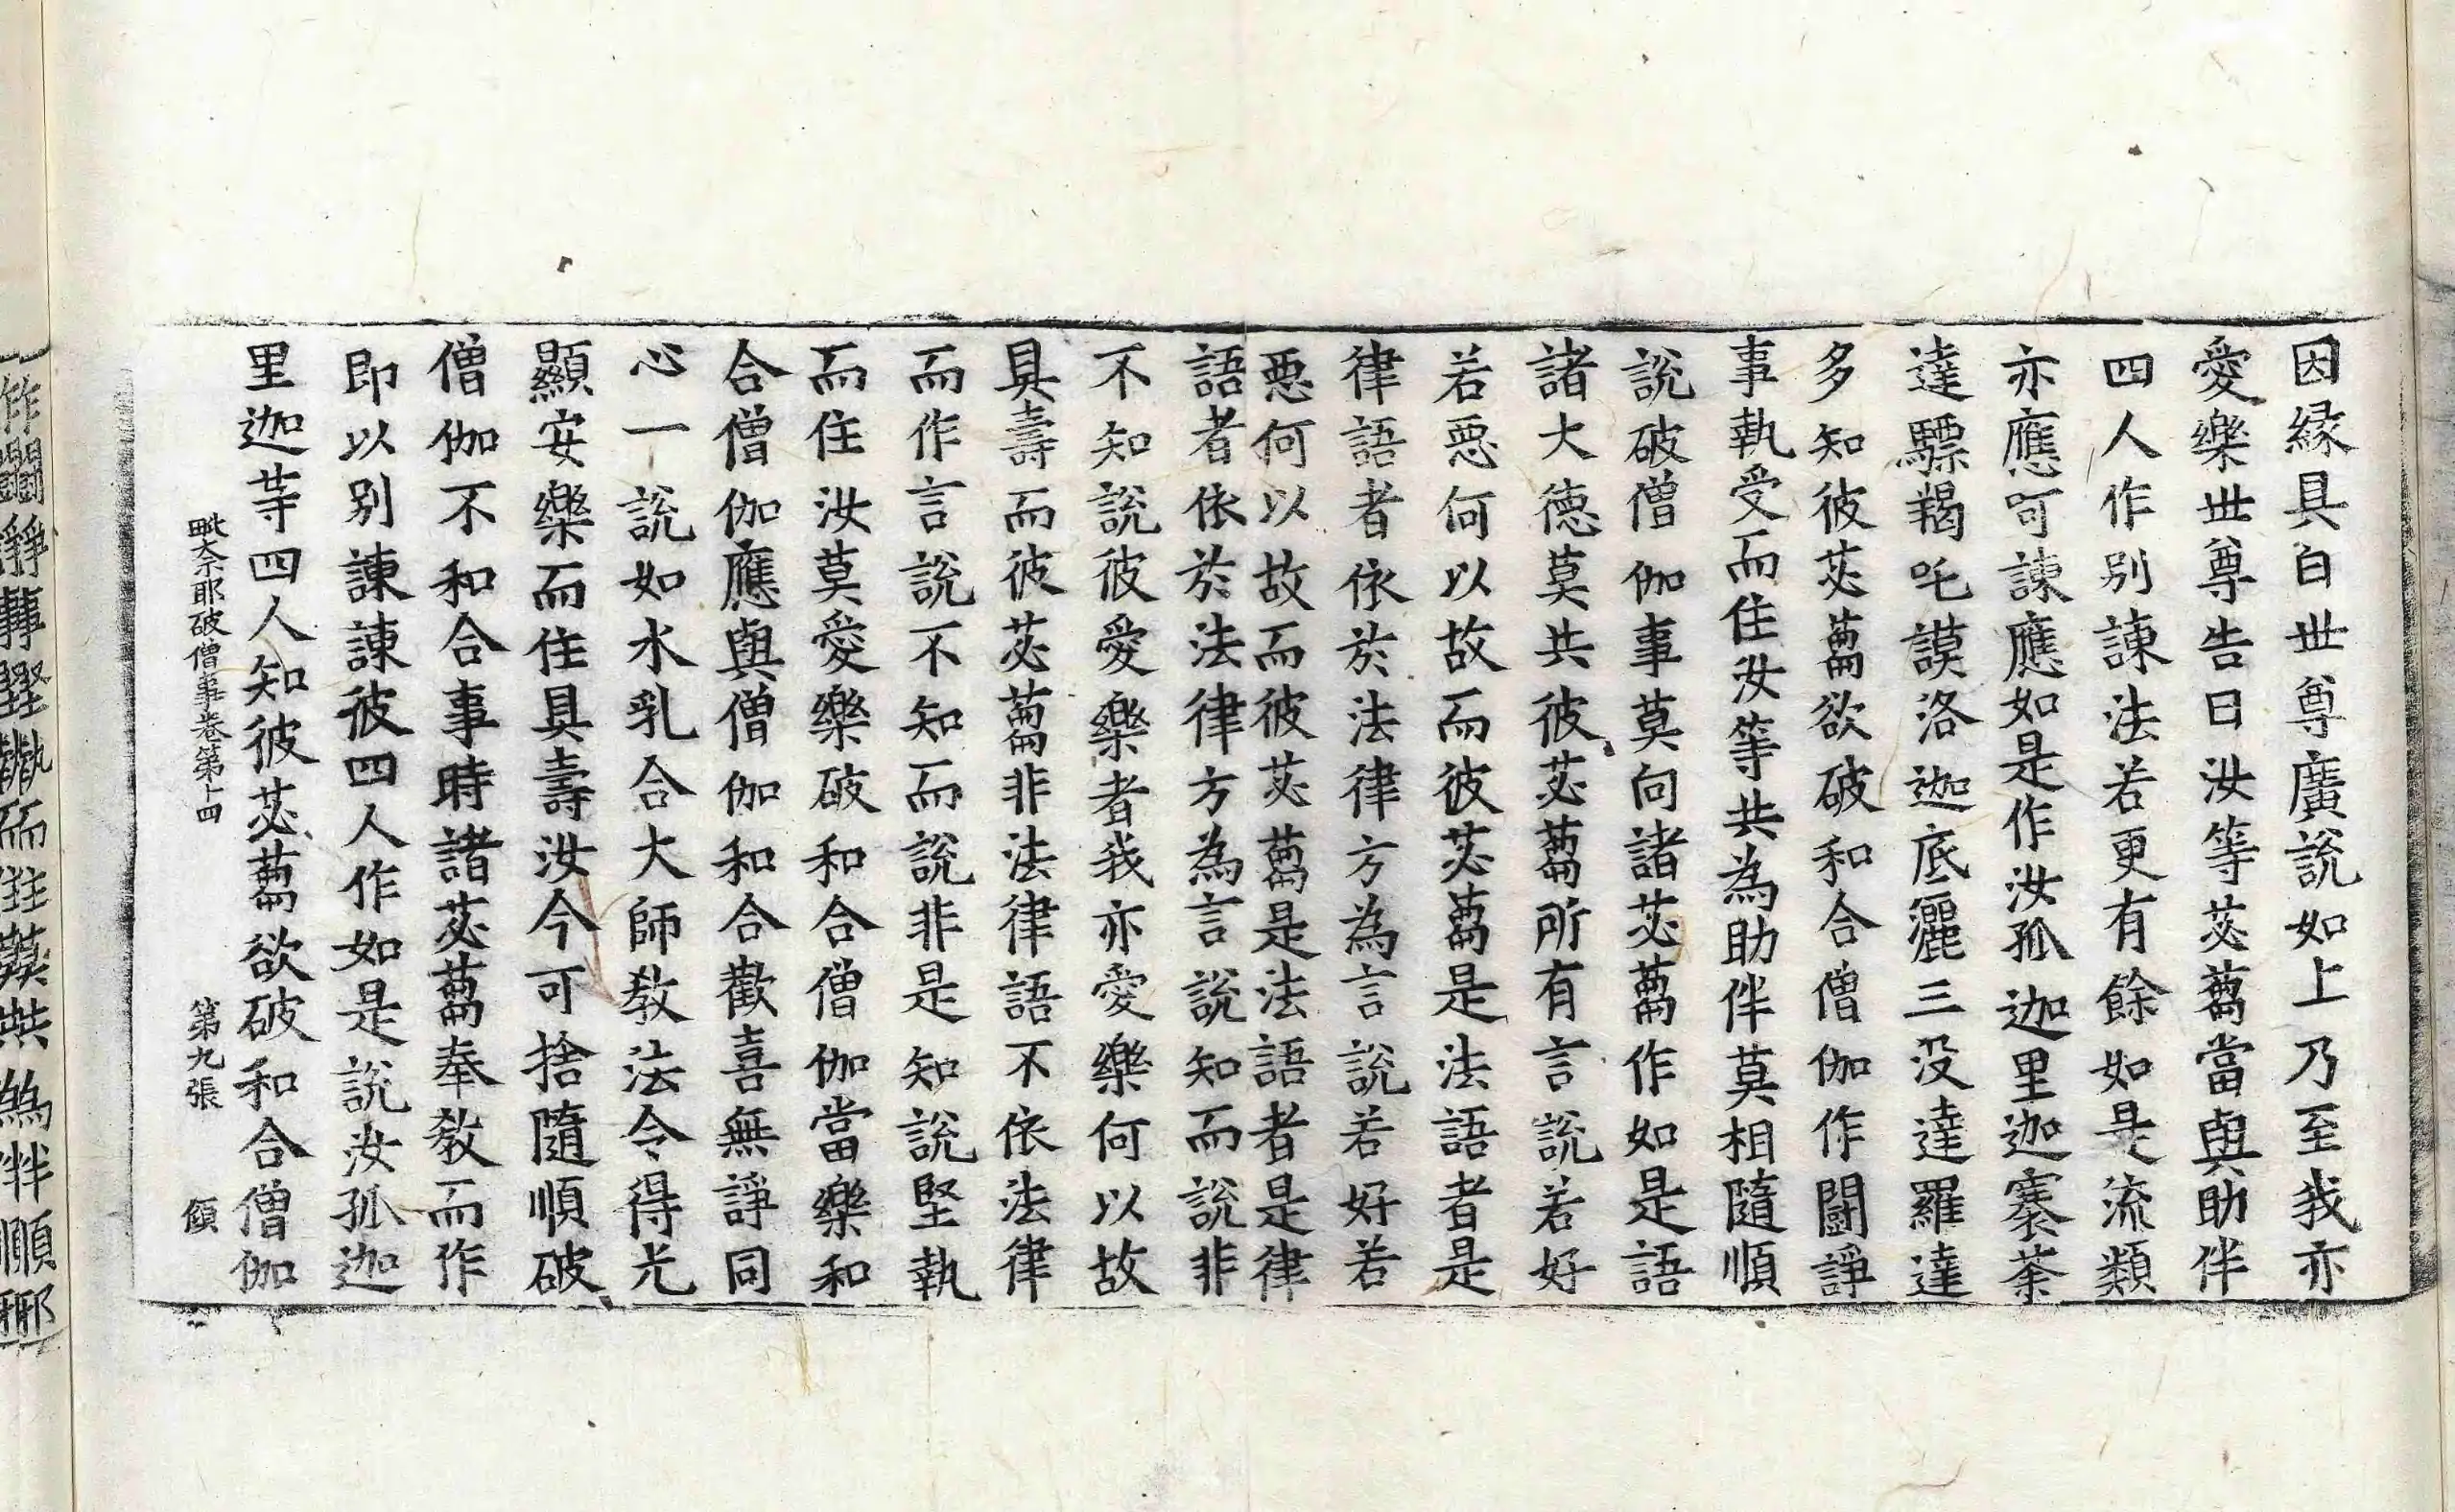 因縁具白世尊廣說如上乃至我亦
愛樂世尊告曰汝等苾蒭當與助伴
四人作别諫法若更有餘如是流類
亦應呵諫應如是作汝孤迦里迦褰荼
達驃羯吒謨洛迦底灑三没達羅達
多知彼苾蒭欲破和合僧伽作鬪諍
事執受而住汝等共為助伴莫相隨順
說破僧伽事莫向諸苾蒭作如是語
諸大德莫共彼苾蒭所有言說若好
若惡何以故而彼苾蒭是法語者是
律語者依於法律方為言說若好若
惡何以故而彼苾蒭是法語者是律
語者依於法律方為言說知而說非
不知說彼愛樂者我亦愛樂何以故
具壽而彼苾蒭非法律語不依法律
而作言說不知而說非是知說堅執
而住汝莫愛樂破和合僧伽當樂和
合僧伽應與僧伽和合歡喜無諍同
心一說如水乳合大師教法令得光
顯安樂而住具壽汝今可捨隨順破
僧伽不和合事時諸苾蒭奉教而作
即以别諫諫彼四人作如是說汝孤迦
里迦等四人知彼苾蒭欲破和合僧伽
毗奈耶破僧事卷第十四 第九張 頠